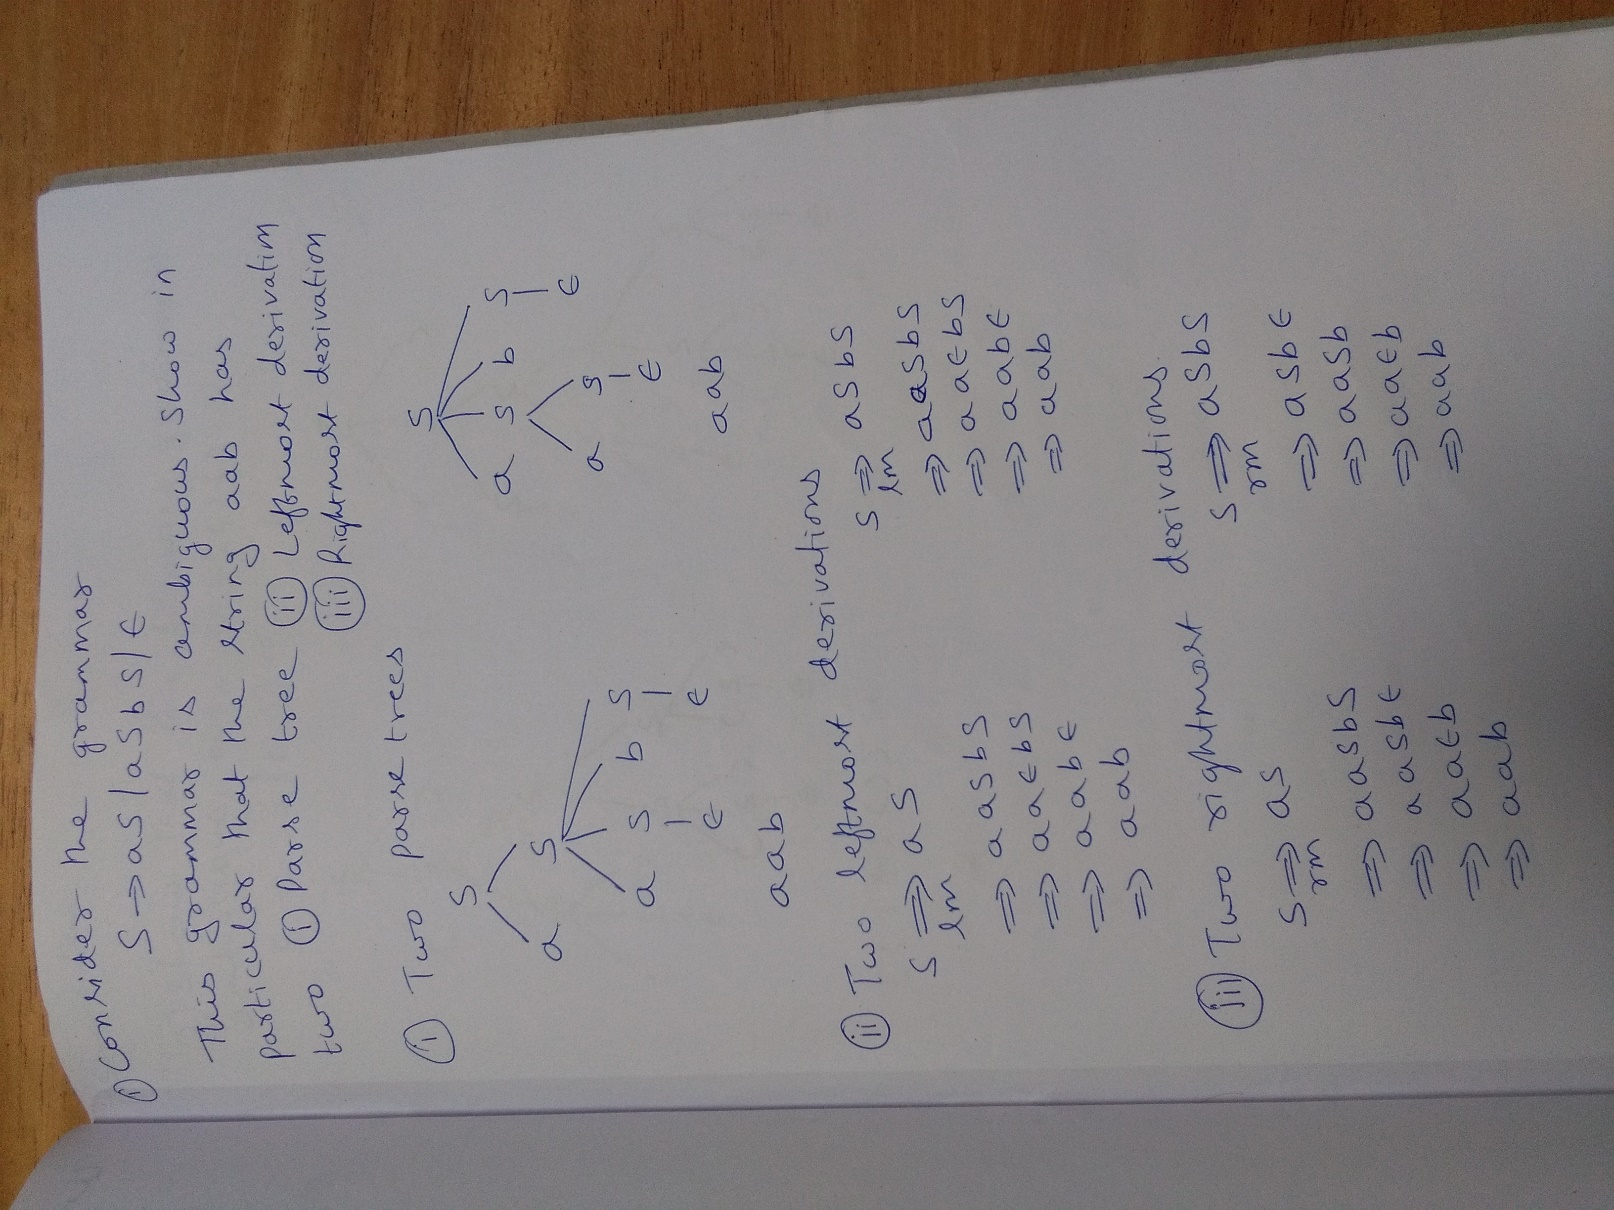 ① Consider the grammar
S → aS | aSbS | ϵ
This grammar is ambiguous. Show in
particular that the string aab has
two ① Parse tree ⓘⓘ Leftmost derivation
ⓘⓘⓘ Rightmost derivation
ⓘ Two parse trees
S
a S
a S b S
ϵ ϵ
aab
S
a S b S
a S ϵ
ϵ
aab
ⓘⓘ Two leftmost derivations
S ⇒ aS
lm
⇒ aaSbS
⇒ aaϵbS
⇒ aabϵ
⇒ aab
S ⇒ aSbS
lm
⇒ aaSbS
⇒ aaϵbS
⇒ aabϵ
⇒ aab
ⓘⓘⓘ Two rightmost derivations
S ⇒ aS
rm
⇒ aaSbS
⇒ aaSbϵ
⇒ aaϵb
⇒ aab
S ⇒ aSbS
rm
⇒ aSbϵ
⇒ aaSb
⇒ aaϵb
⇒ aab